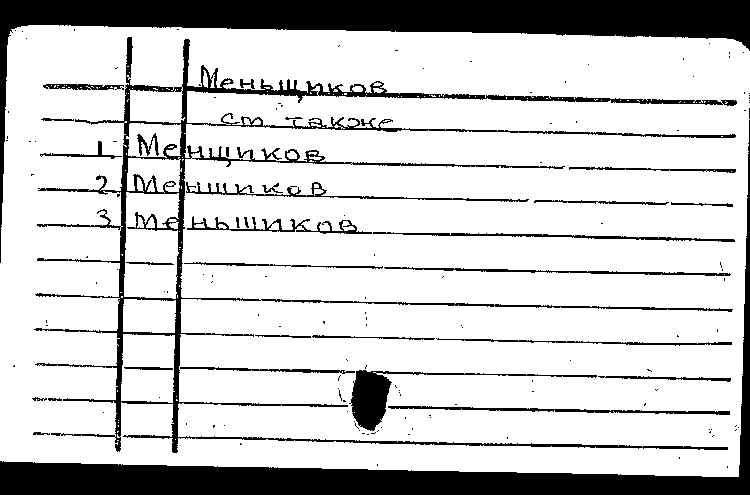 Меньщиков
см также
1. Менщиков
2. Меншиков
3. Меньшиков